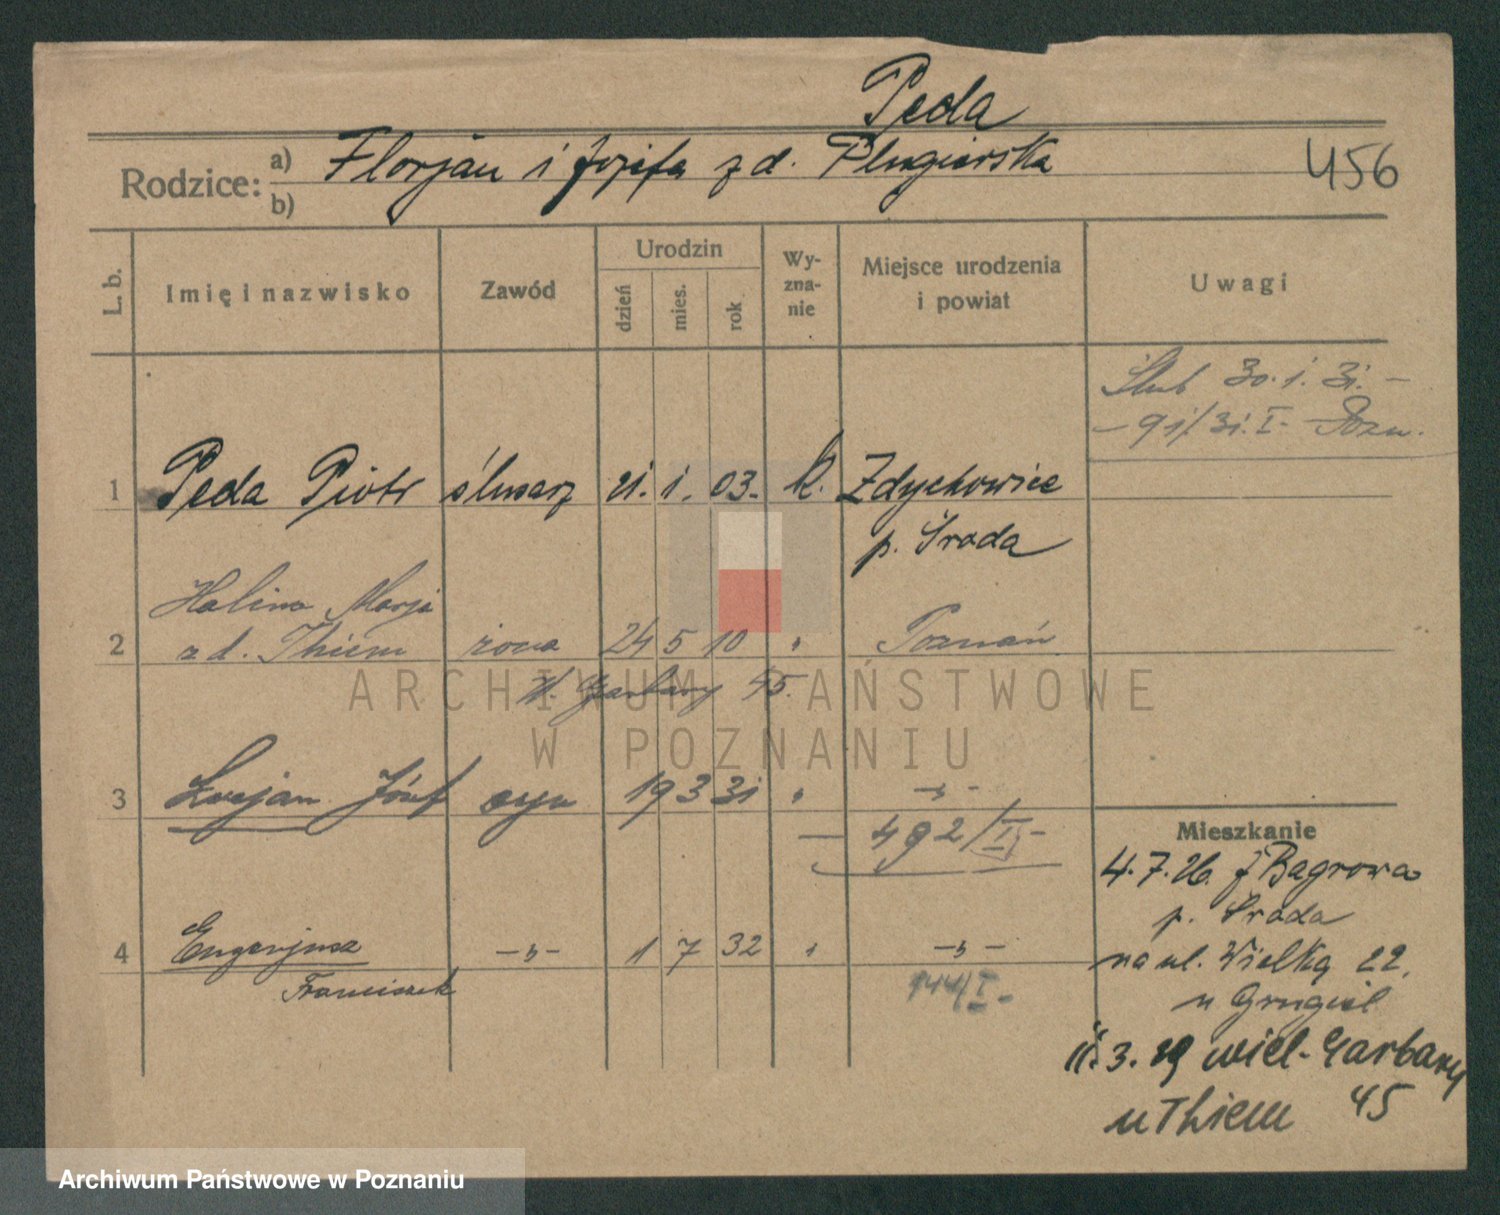 Peda
Rodzice: a) Florjan i Józefa z d. Plugierska 456
b)
L. b. Imię i nazwisko Zawód Urodzin dzień mies. rok Wyznanie Miejsce urodzenia i powiat Uwagi
Ślub 30. 1. 31. –
– 91/31. I. – Pozn.
1 Peda Piotr ślusarz 21. 1. 03. k. Zdychowice
p. Środa
Halina Marja
2 z d. Thiem żona 24 5 10 " Poznań
W. Garbary 45.
3 Lucjan Józef syn 19 3 31 " –"–
– 492/I –
Mieszkanie
4. 7. 26. z Bagrowa
p. Środa
4 Eugenjusz –"– 1 7 32 " –"–
na ul. Wielką 22.
Franciszek
144/I –
u Grugiel
11. 3. 29 wiel. Garbary
45
u Thiem
ARCHIWUM PAŃSTWOWE
W POZNANIU
Archiwum Państwowe w Poznaniu